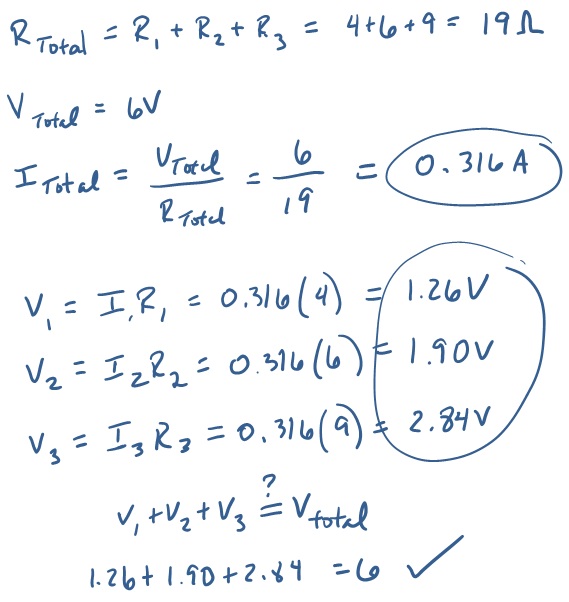 R Total = R₁ + R₂ + R₃ = 4+6+9 = 19Ω
V Total = 6V
I Total = V Total / R Total = 6 / 19 = 0.316 A
V₁ = I₁R₁ = 0.316(4) = 1.26V
V₂ = I₂R₂ = 0.316(6) = 1.90V
V₃ = I₃R₃ = 0.316(9) = 2.84V
V₁+V₂+V₃ ≟ V total
1.26+1.90+2.84 = 6 ✓